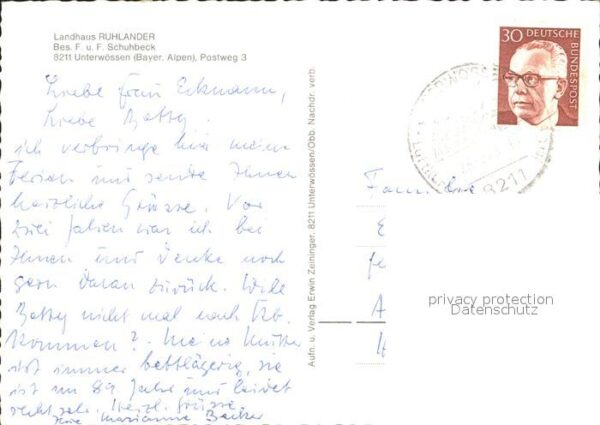 Landhaus RUHLANDER
Bes. F. u. F. Schuhbeck
8211 Unterwössen (Bayer. Alpen), Postweg 3
Liebe Frau Eckmann,
Liebe Betty.
ich verbringe hier meine
Ferien und sende Ihnen
herzliche Grüsse. Vor
zwei Jahren war ich bei
Ihnen und denke noch
gern daran zurück. Will
Betty nicht mal nach
kommen? Meine Mutter
ist immer bettlägerig, sie
ist im 89 Jahr und leidet
recht sehr. Herzl. Grüsse
Ihre Marianne
Aufn. u. Verlag Erwin Zeininger, 8211 Unterwössen/Obb. Nachdr. verb.
30 DEUTSCHE BUNDESPOST
8211
Familie
E
A
privacy protection
Datenschutz